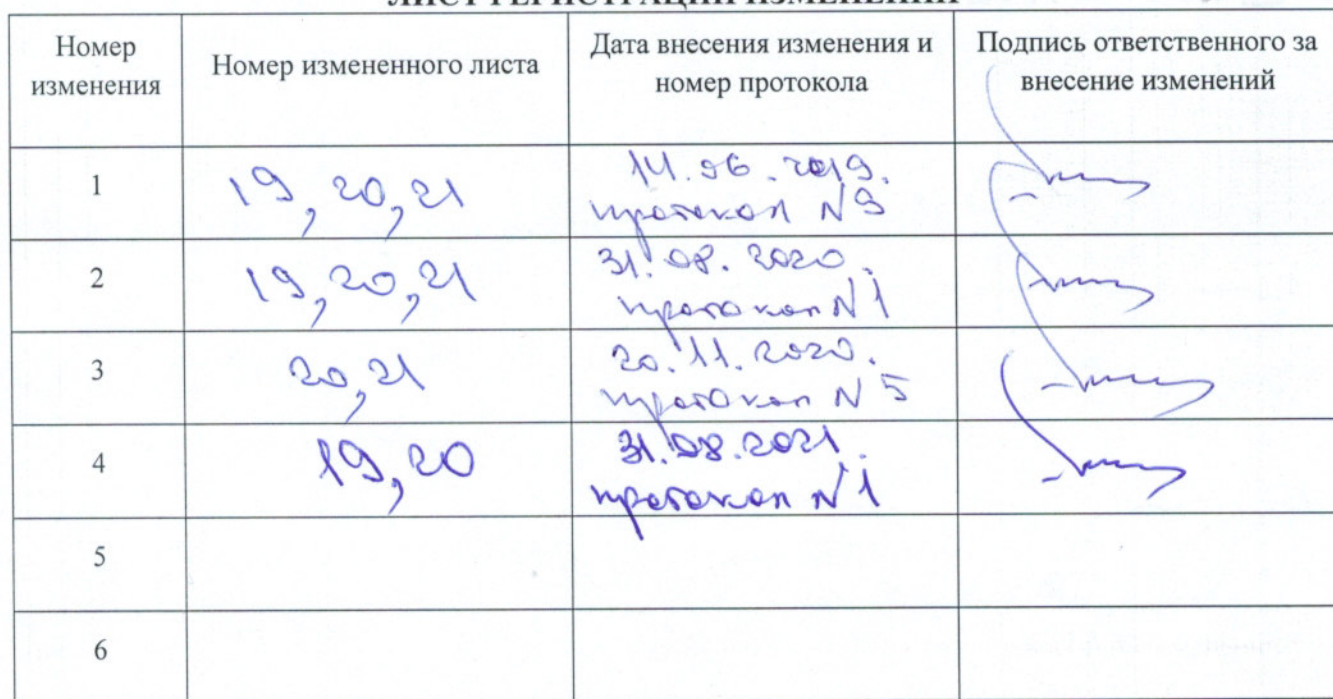 ЛИСТ РЕГИСТРАЦИИ ИЗМЕНЕНИЙ
Номер изменения
Номер измененного листа
Дата внесения изменения и номер протокола
Подпись ответственного за внесение изменений
1
19, 20, 21
14.06.2019.
протокол N9
2
19, 20, 21
31.08.2020.
протокол N1
3
20, 21
20.11.2020.
протокол N5
4
19, 20
31.08.2021.
протокол N1
5
6